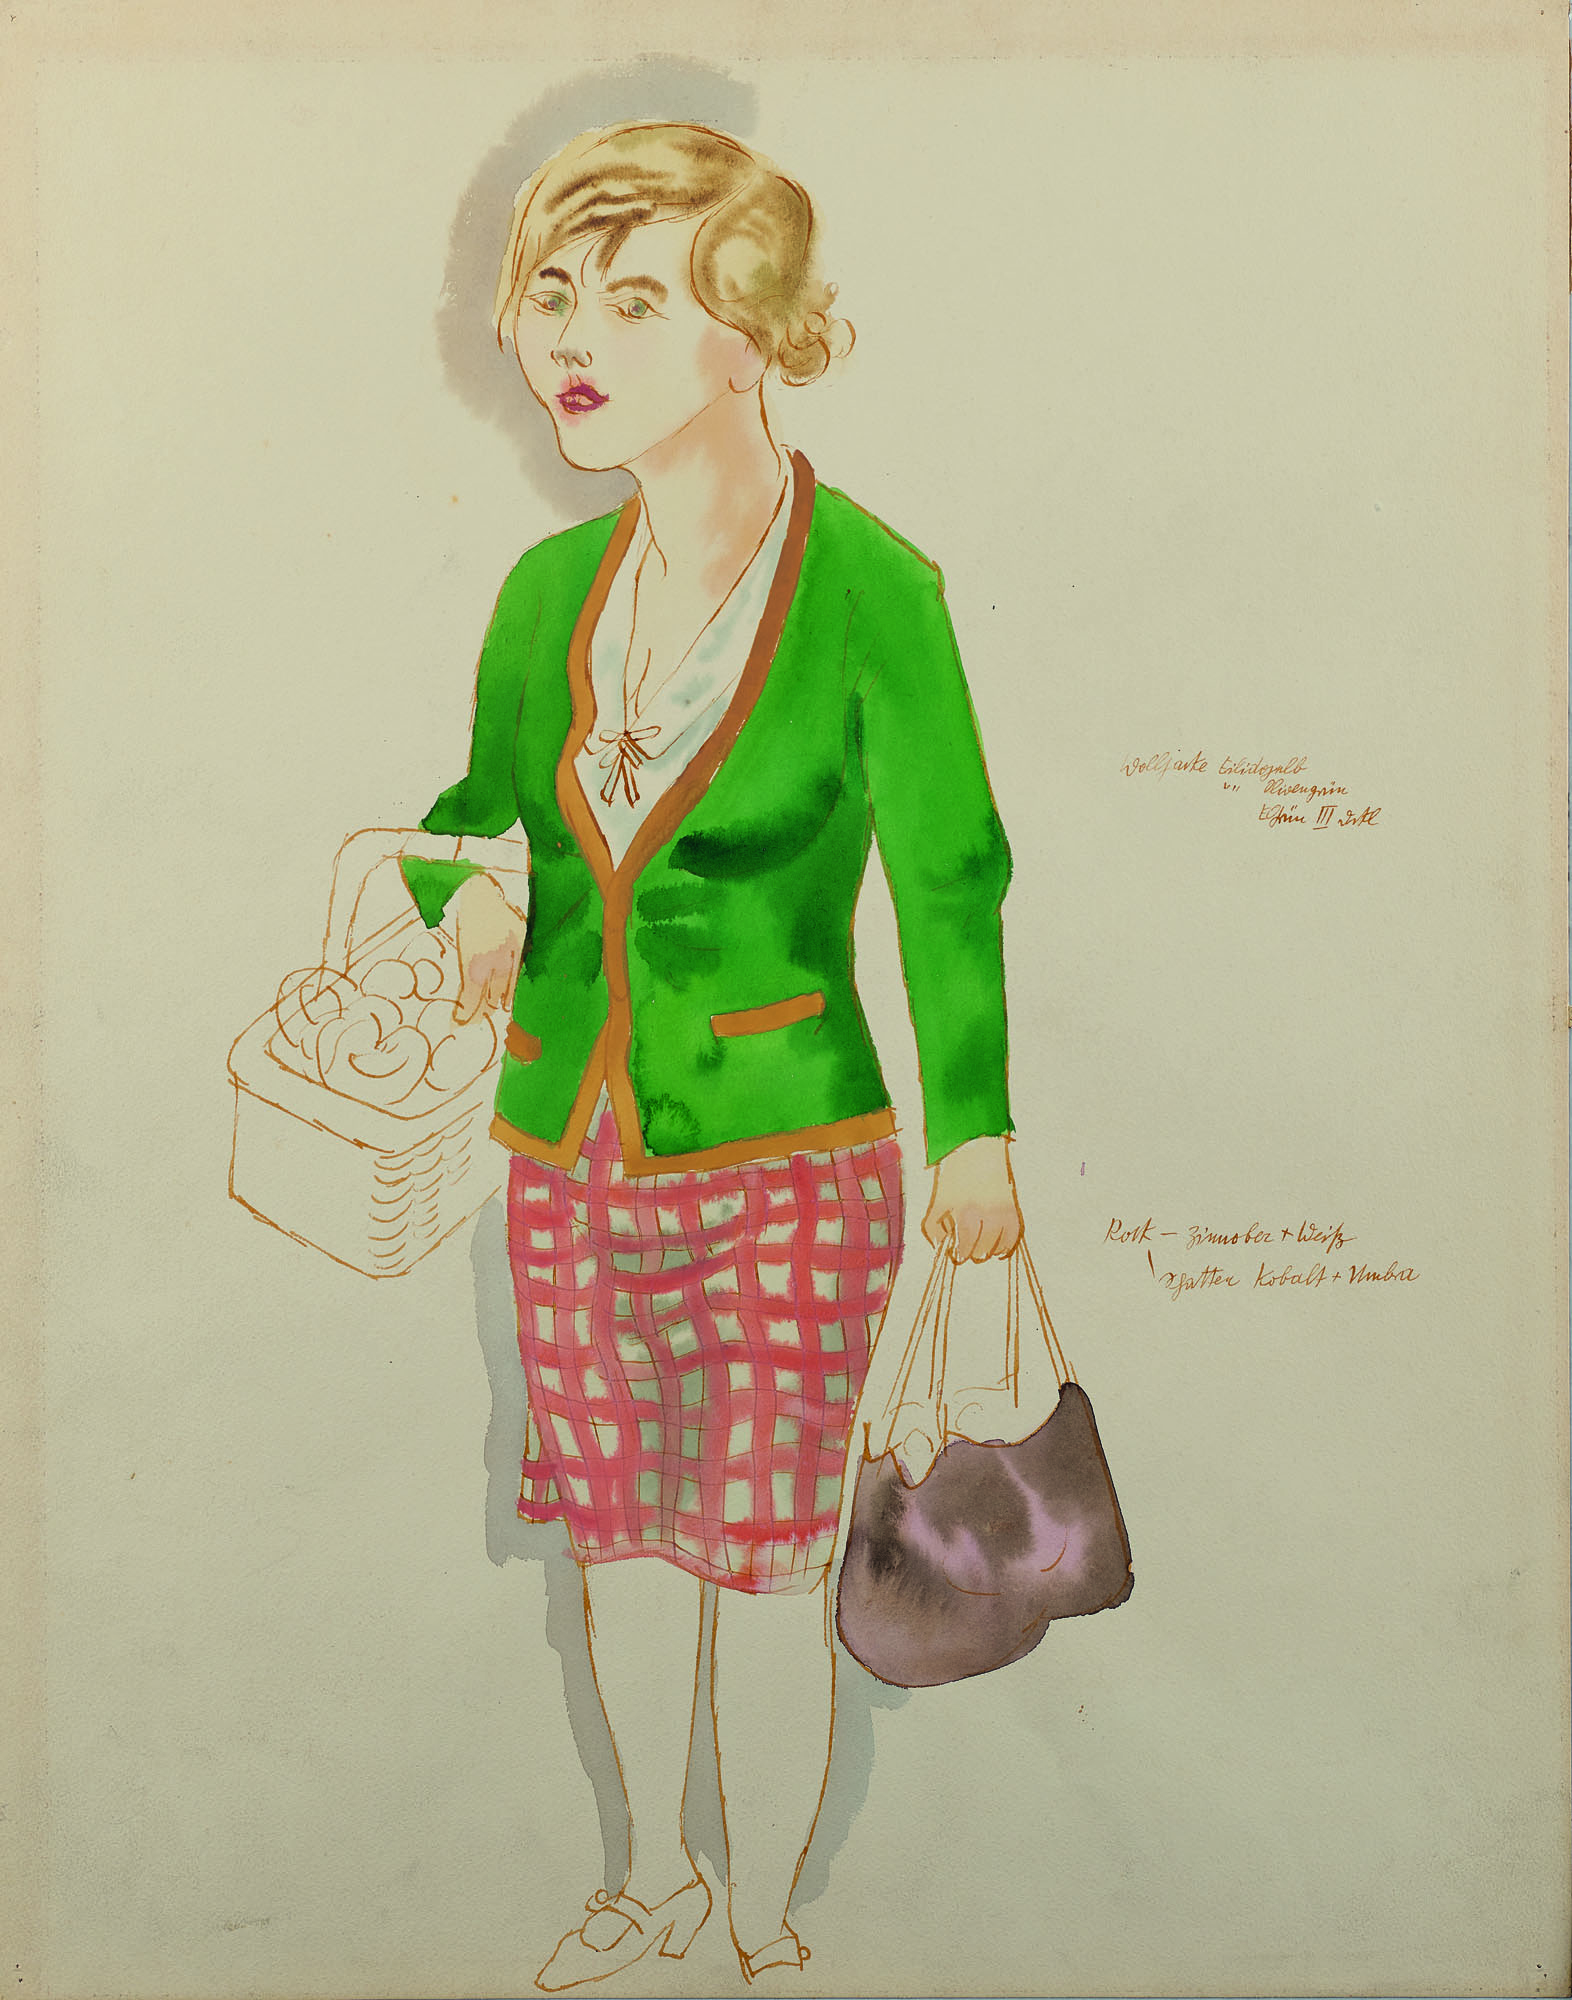 Wolljacke
" Olivengrün
Grün III dkl
Rock — Zinnober + Weiß
Schatten Kobalt + Umbra